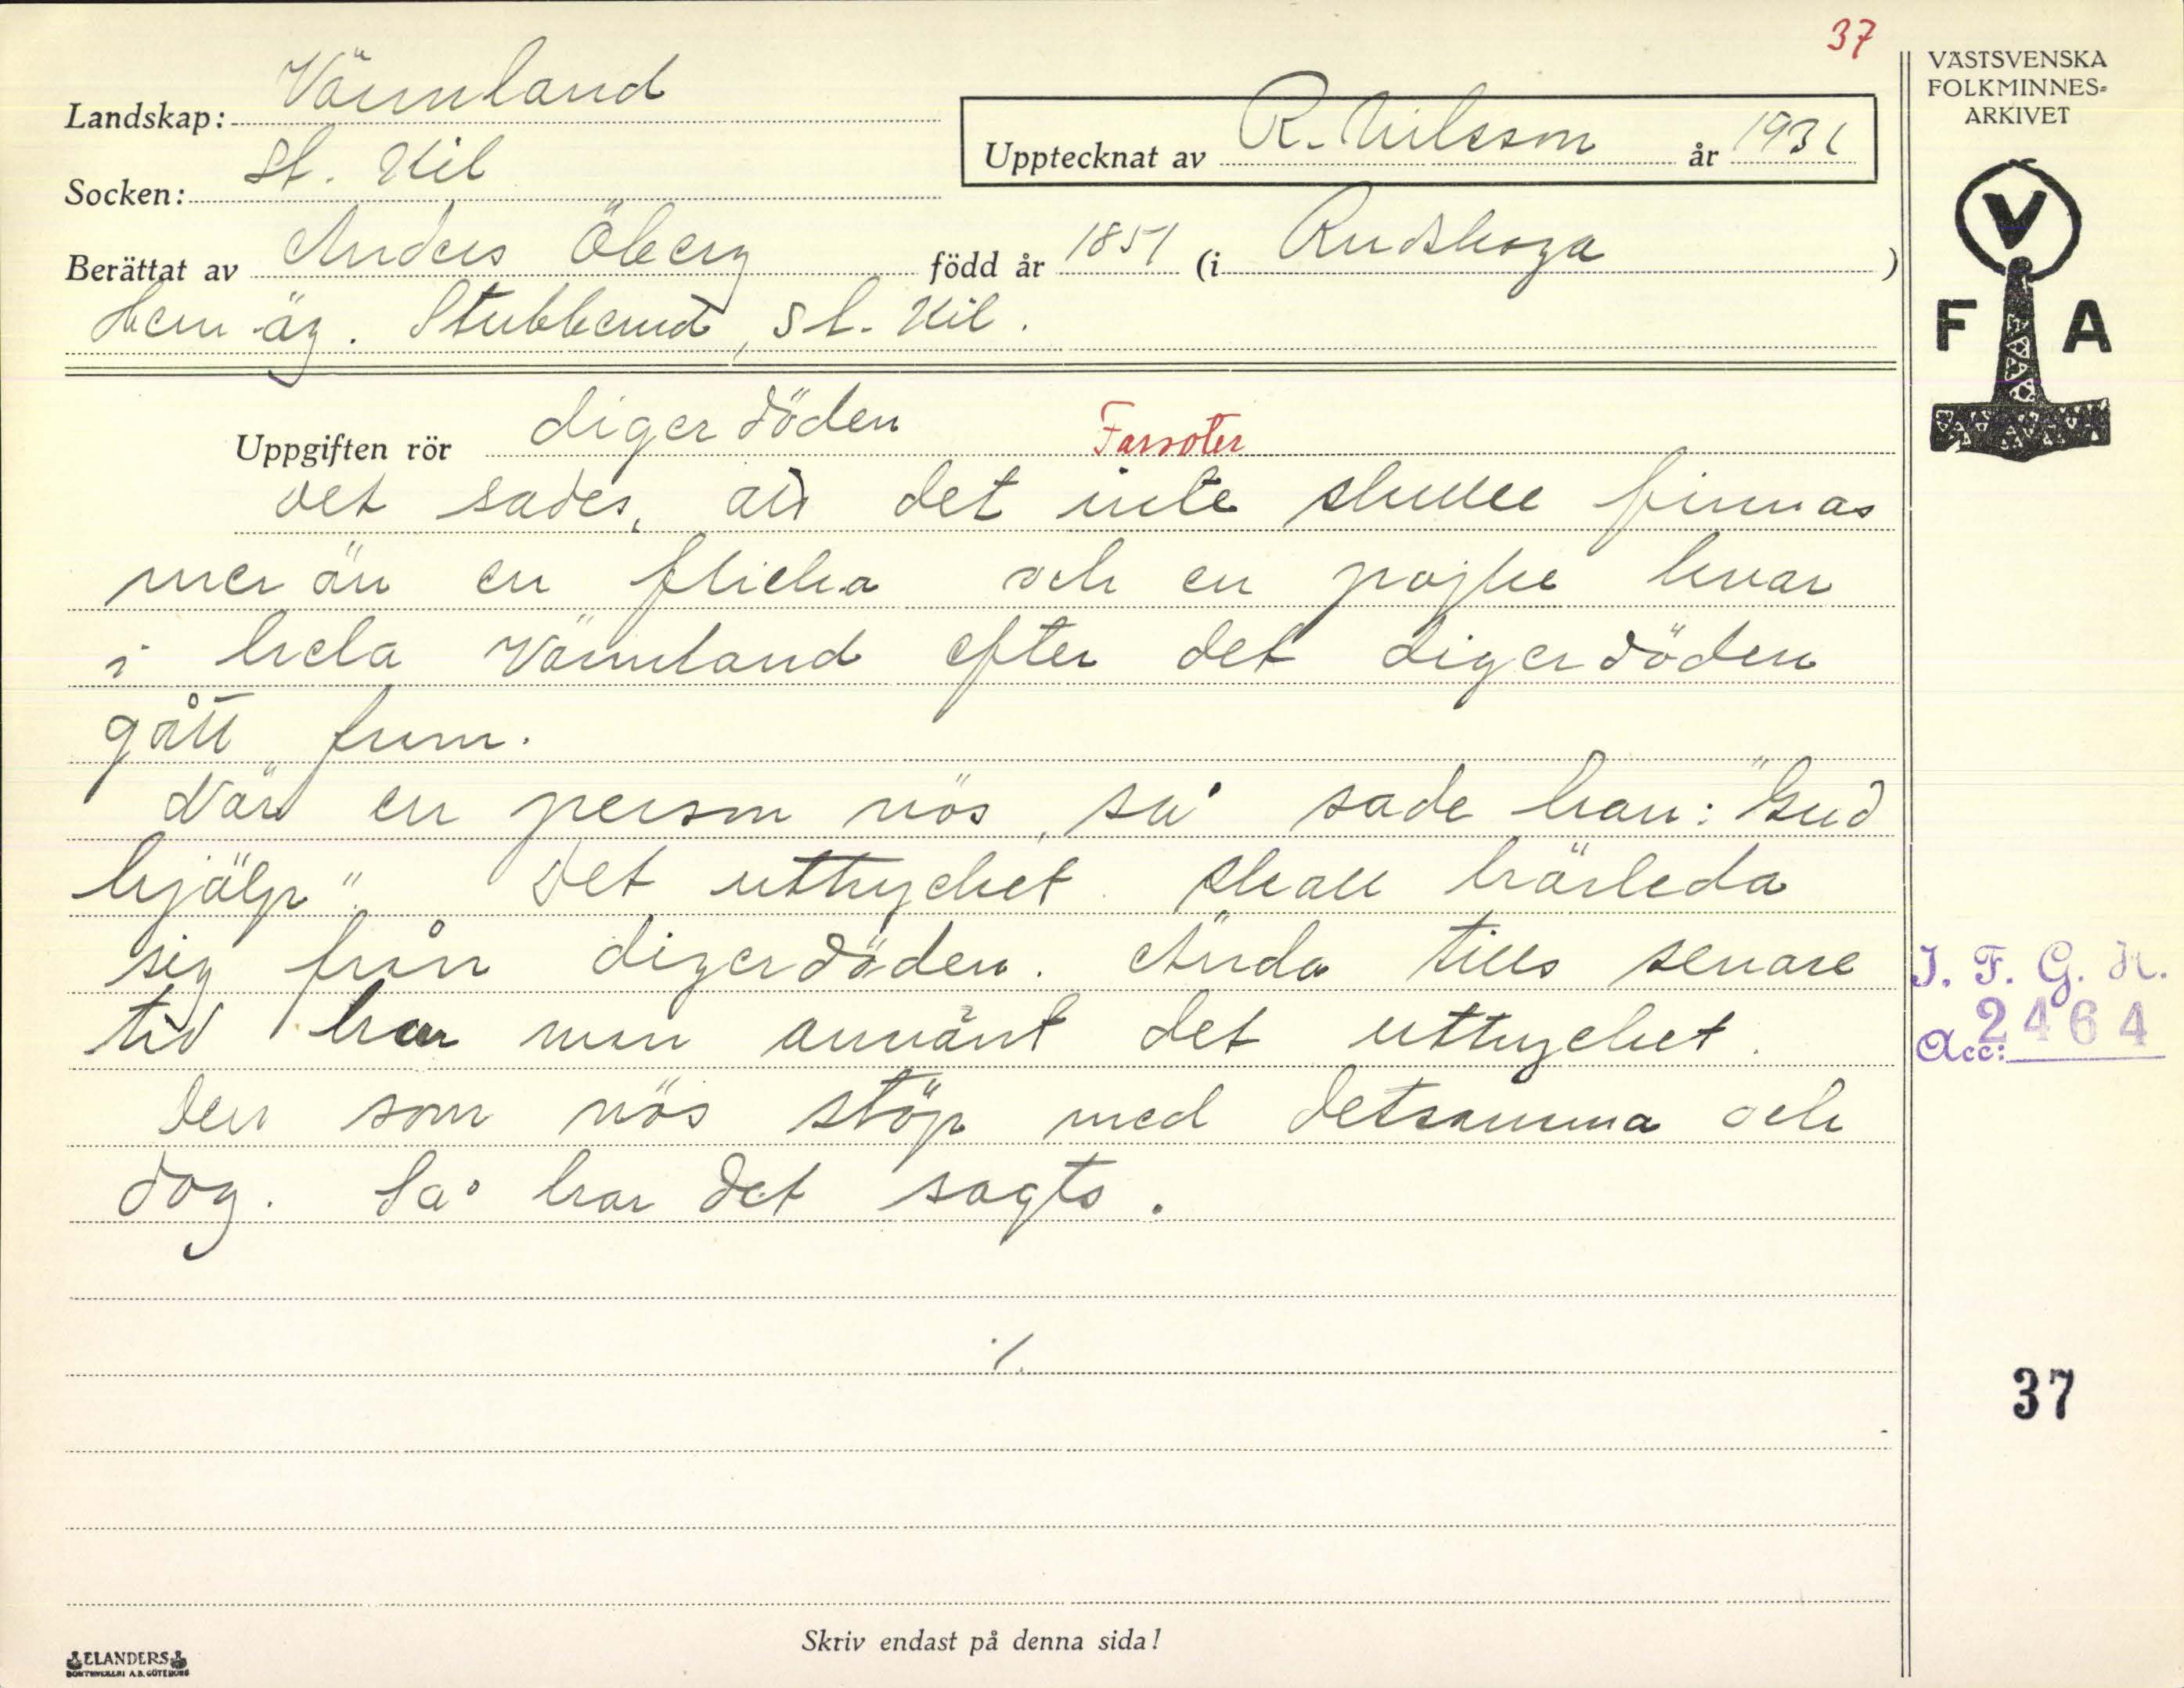 37
VÄSTSVENSKA
FOLKMINNES-
ARKIVET
Landskap: Värmland
Upptecknat av R. Nilsson år 1931
Socken: St. Kil
Berättat av Anders Öberg född år 1851 (i Rudskoga)
Hem.äg. Stubberud, St. Kil.
V
F A
Uppgiften rör digerdöden Farsoter
Det sades, att det inte skulle finnas
mer än en flicka och en pojke kvar
i hela Värmland efter det digerdöden
gått fram.
När en person nös, så sade han: "Gud
hjälp". Det uttrycket skall härleda
sig från digerdöden. Ända tills senare
tid har man använt det uttrycket.
Den som nös stöp med detsamma och
dog. Så har det sagts.
I. F. G. H.
Acc: 2464
./.
37
Skriv endast på denna sida!
ELANDERS
BOKTRYCKERI A.B. GÖTEBORG